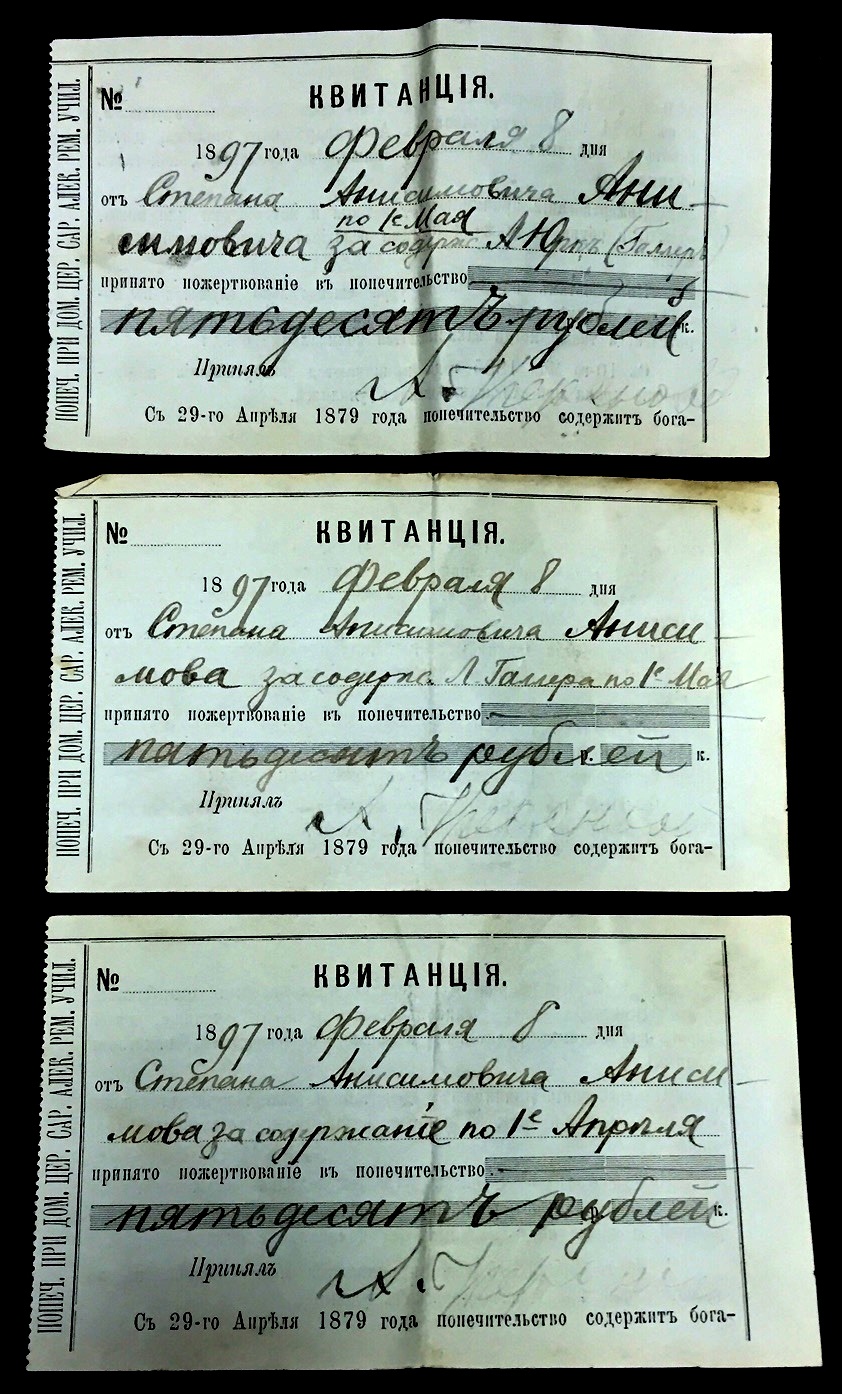 ПОПЕЧ. ПРИ ДОМ. ЦЕР. САР. АЛЕК. РЕМ. УЧИЛ.
№
КВИТАНЦІЯ.
1897 года Февраля 8 дня
отъ Степана Анисимовича Ани-
по 1е Мая
симовича за содерж А Юрт
принято пожертвованіе въ попечительство
пятьдесятъ рублей к.
Принялъ
А.
Съ 29-го Апрѣля 1879 года попечительство содержитъ бога-
ПОПЕЧ. ПРИ ДОМ. ЦЕР. САР. АЛЕК. РЕМ. УЧИЛ.
№
КВИТАНЦІЯ.
1897 года Февраля 8 дня
отъ Степана Анисимовича Аниси-
мова за содерж. Л Галлера по 1е Мая
принято пожертвованіе въ попечительство
пятьдесятъ рублей к.
Принялъ
А.
Съ 29-го Апрѣля 1879 года попечительство содержитъ бога-
ПОПЕЧ. ПРИ ДОМ. ЦЕР. САР. АЛЕК. РЕМ. УЧИЛ.
№
КВИТАНЦІЯ.
1897 года Февраля 8 дня
отъ Степана Анисимовича Аниси-
мова за содержаніе по 1е Апрѣля
принято пожертвованіе въ попечительство
пятьдесятъ рублей к.
Принялъ
А.
Съ 29-го Апрѣля 1879 года попечительство содержитъ бога-